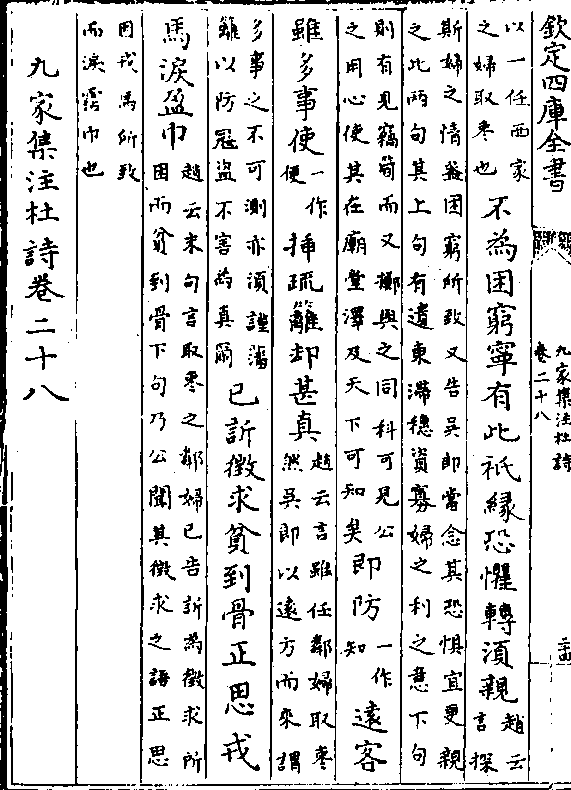 欽定四庫全書
九家集注杜詩
卷二十八
以一任西家
之婦取棗也
不為困窮寧有此祇縁恐懼轉須親
趙云
言探
斯婦之情蓋困窮所致又告吳郎當念其恐惧宜更親
之此兩句其上句有遺秉滯穗資寡婦之利之意下句
則有見竊筍而又擲與之同科可見公
之用心使其在廟堂澤及天下可知矣
即防
一作
知
遠客
雖多事使
一作
便
揷疏籬却甚真
趙云言雖任鄰婦取棗
然吳郎以遠方而來謂
多事之不可測亦須謹藩
籬以防冦盜不害為真爾
已訴徵求貧到骨正思戎
馬淚盈巾
趙云末句言取棗之鄰婦已告訴為徵求所
困而貧到骨下句乃公聞其徵求之語正思
因戎馬所致
而淚霑巾也
九家集注杜詩卷二十八